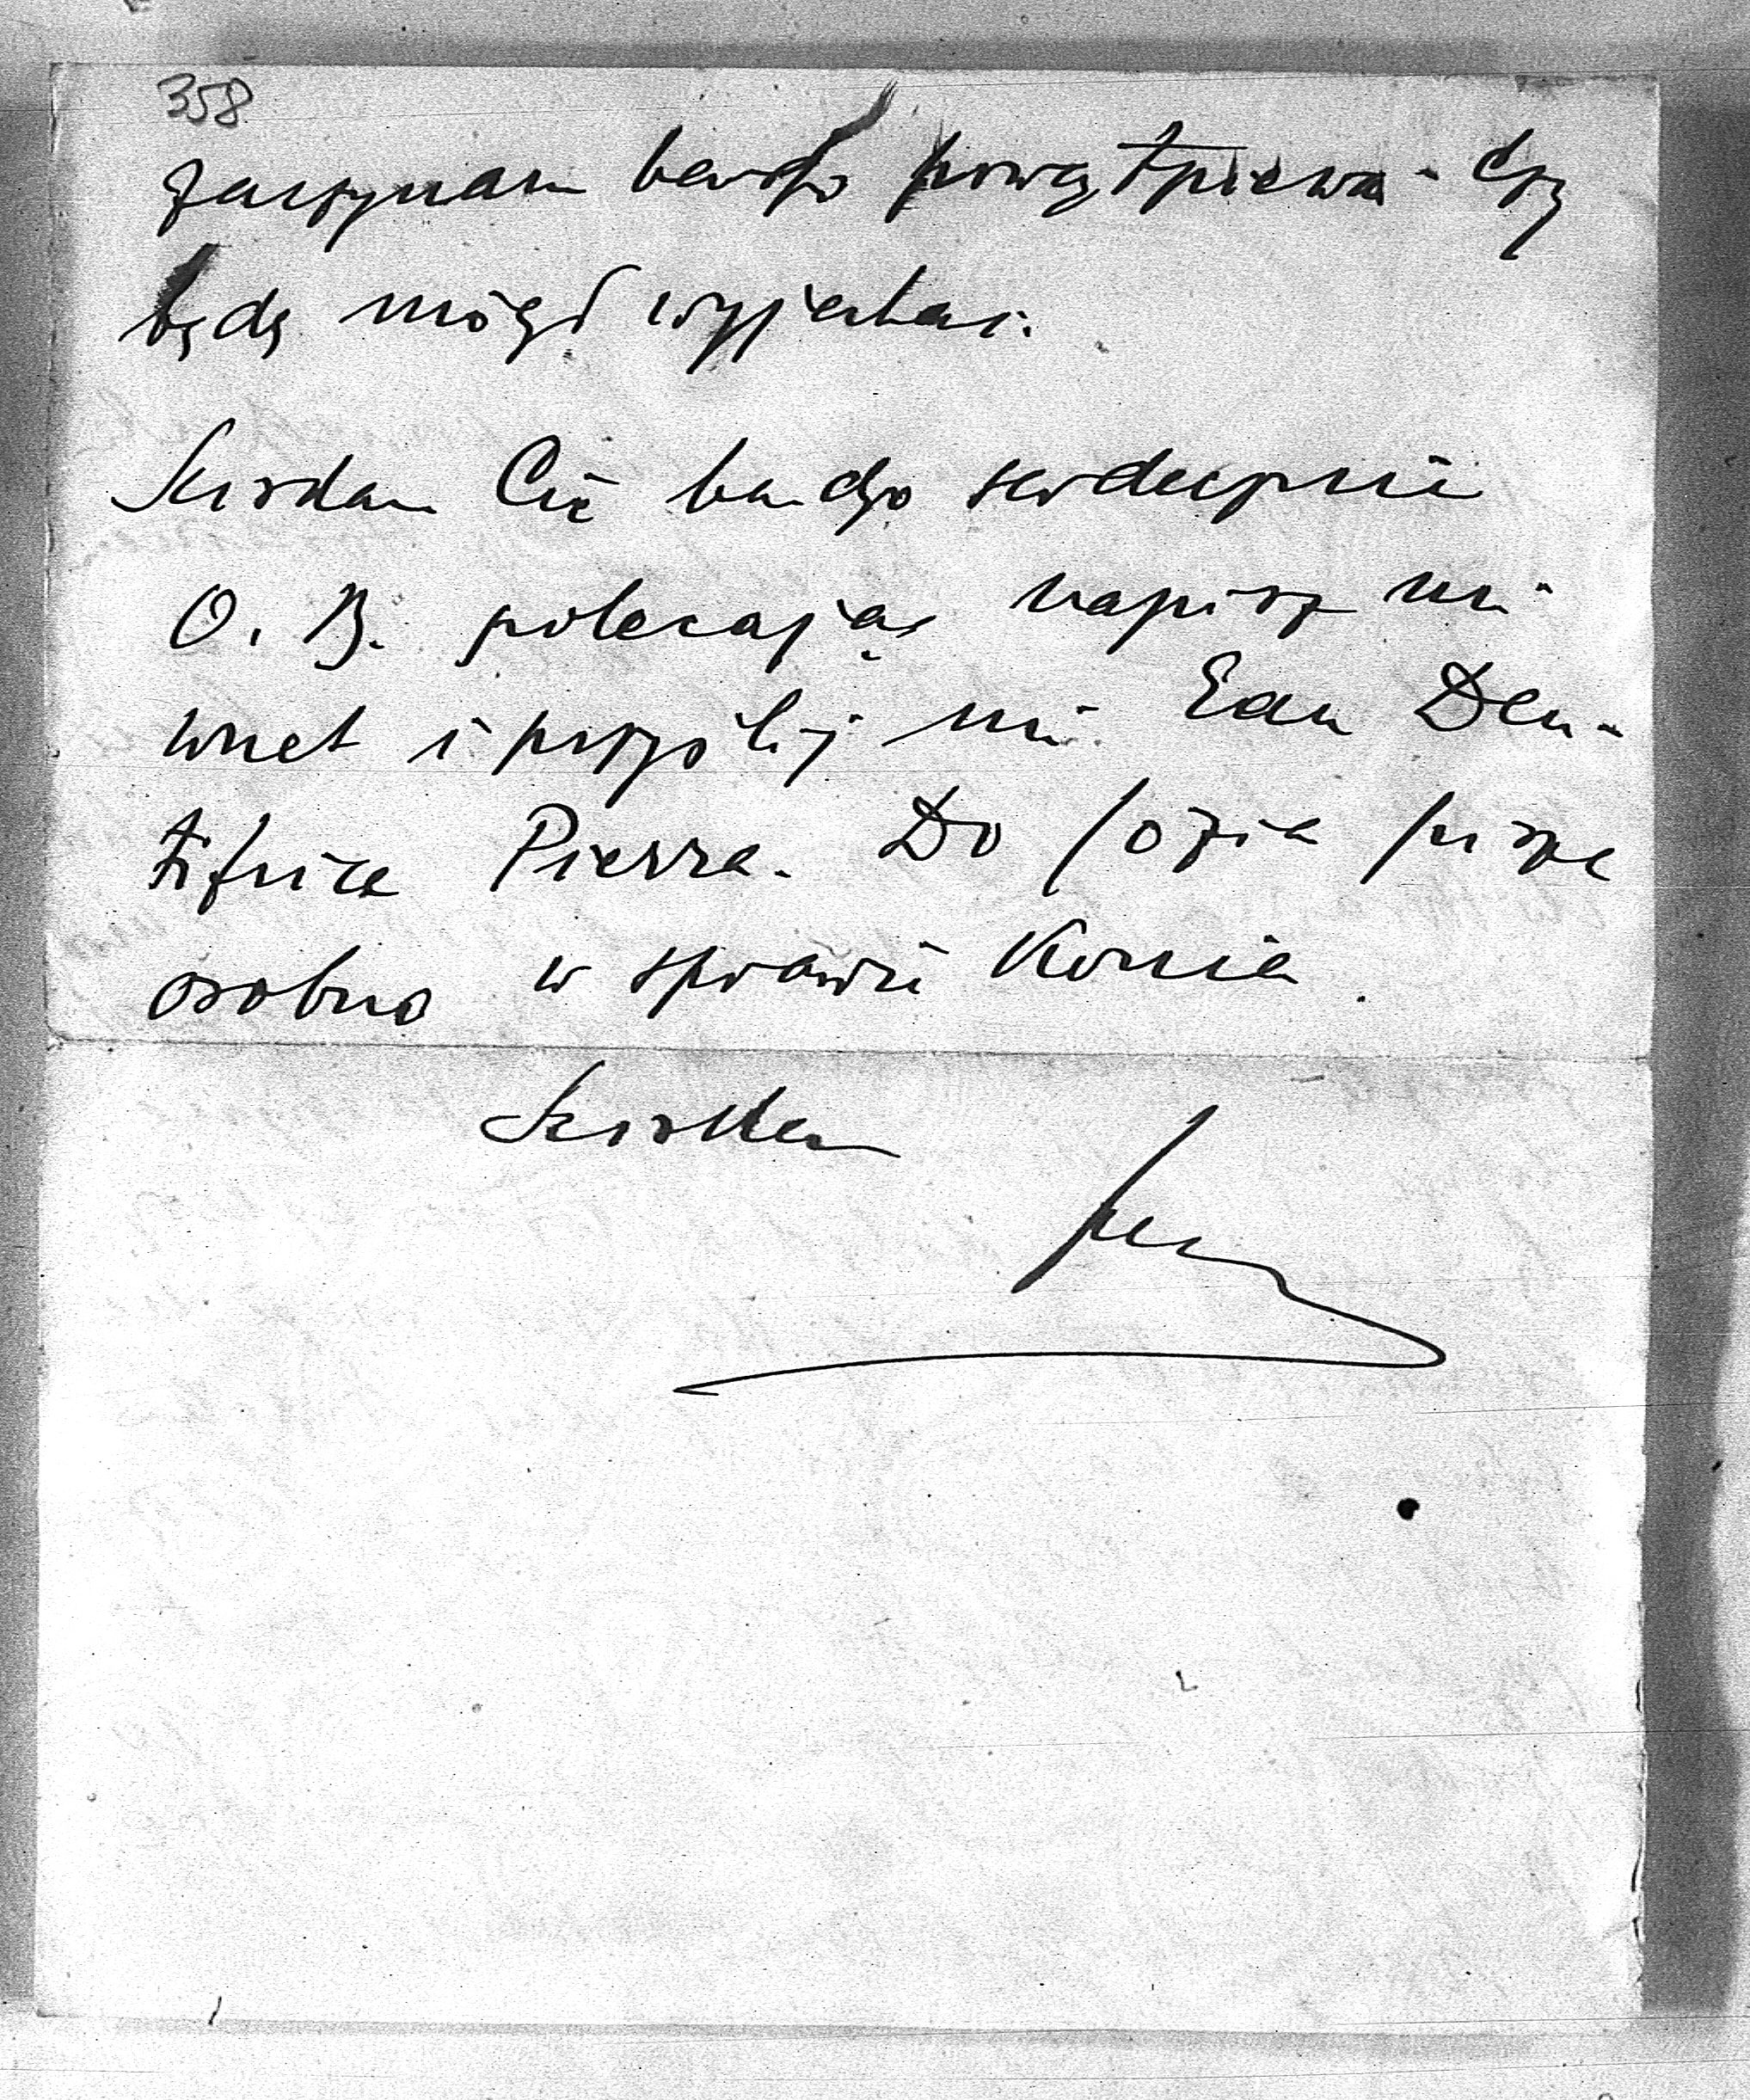 358
zaczynam bardzo powątpiewać czy
będę mógł wyjechać.
Ściskam Cię bardzo serdecznie
O. B. polecając napisz mi
wnet i przyślij mi Eau Den-
tifrice Pierre. Do Józia piszę
osobno w sprawie Konia.
Ściskam